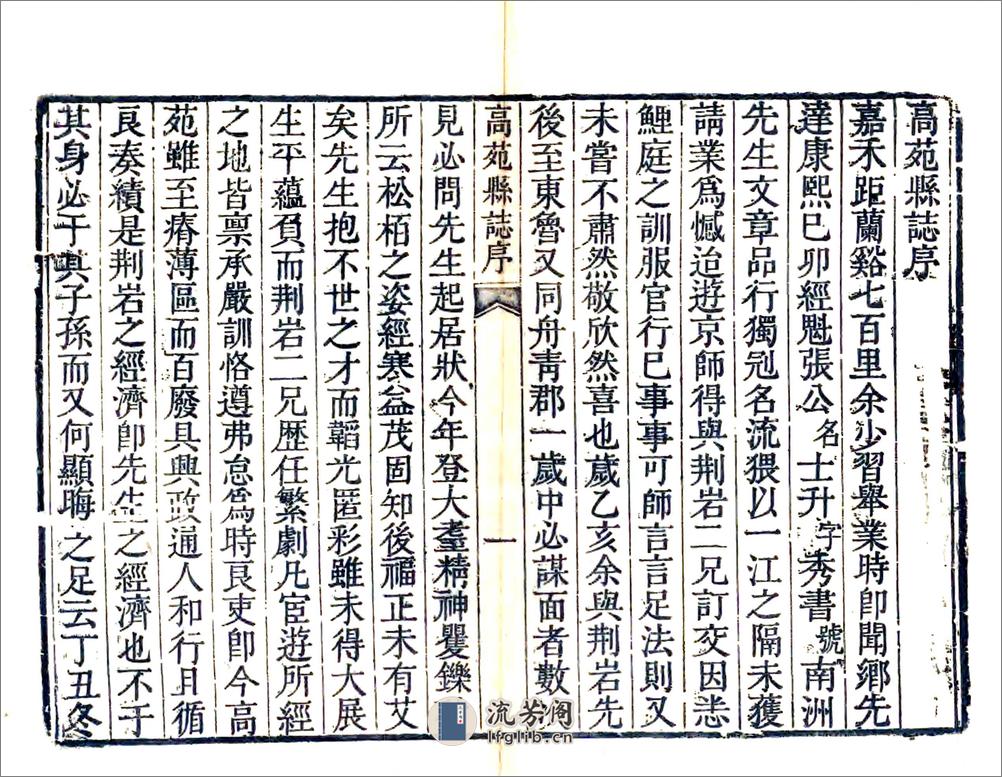 高苑縣誌序
嘉禾距蘭谿七百里余少習舉業時卽聞鄉先
達康熙己卯經魁張公名士升字秀書號南洲
先生文章品行獨冠名流猥以一江之隔未獲
請業爲憾迨遊京師得與荆岩二兄訂交因悉
鯉庭之訓服官行己事事可師言言足法則又
未嘗不肅然敬欣然喜也歲乙亥余與荆岩先
後至東魯又同舟靑郡一歲中必謀面者數
高苑縣誌序
一
見必問先生起居狀今年登大耋精神矍鑠
所云松栢之姿經寒益茂固知後福正未有艾
矣先生抱不世之才而韜光匿彩雖未得大展
生平蘊負而荆岩二兄歷任繁劇凡宦遊所經
之地皆禀承嚴訓恪遵弗怠爲時良吏卽今高
苑雖至瘠薄區而百廢具興政通人和行且循
良奏績是荆岩之經濟卽先生之經濟也不于
其身必于其子孫而又何顯晦之足云丁丑冬
流芳阁
lfglib.cn